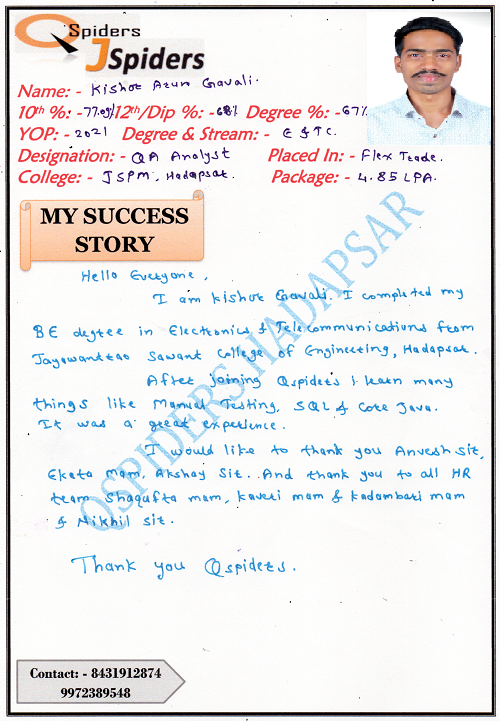 QSpiders
JSpiders
Name: - Kishor Arun Gavali.
10th %: -77.09% 12th/Dip %: -68% Degree %: -67%
YOP: - 2021 Degree & Stream: - E & TC.
Designation: - QA Analyst Placed In: - Flex Trade.
College: - JSPM, Hadapsar. Package: - 4.85 LPA.
MY SUCCESS
STORY
Hello Everyone,
I am Kishor Gavali. I completed my
BE degree in Electronics & Telecommunications from
Jayawantrao Sawant College of Engineering, Hadapsar.
After joining Qspiders I learn many
things like Manual Testing, SQL & Core Java.
It was a great experience.
I would like to thank you Anvesh Sir,
Ekata Mam, Akshay Sir.. And thank you to all HR
team Shagufta mam, Kaveri mam & Kadambari mam
& Nikhil Sir.
Thank you Qspiders.
QSPIDERS HADAPSAR
Contact: - 8431912874
9972389548